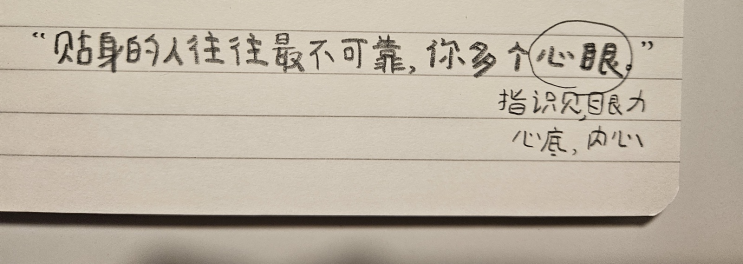 “贴身的人往往最不可靠,你多个心眼。”
指识见,眼力
心底,内心